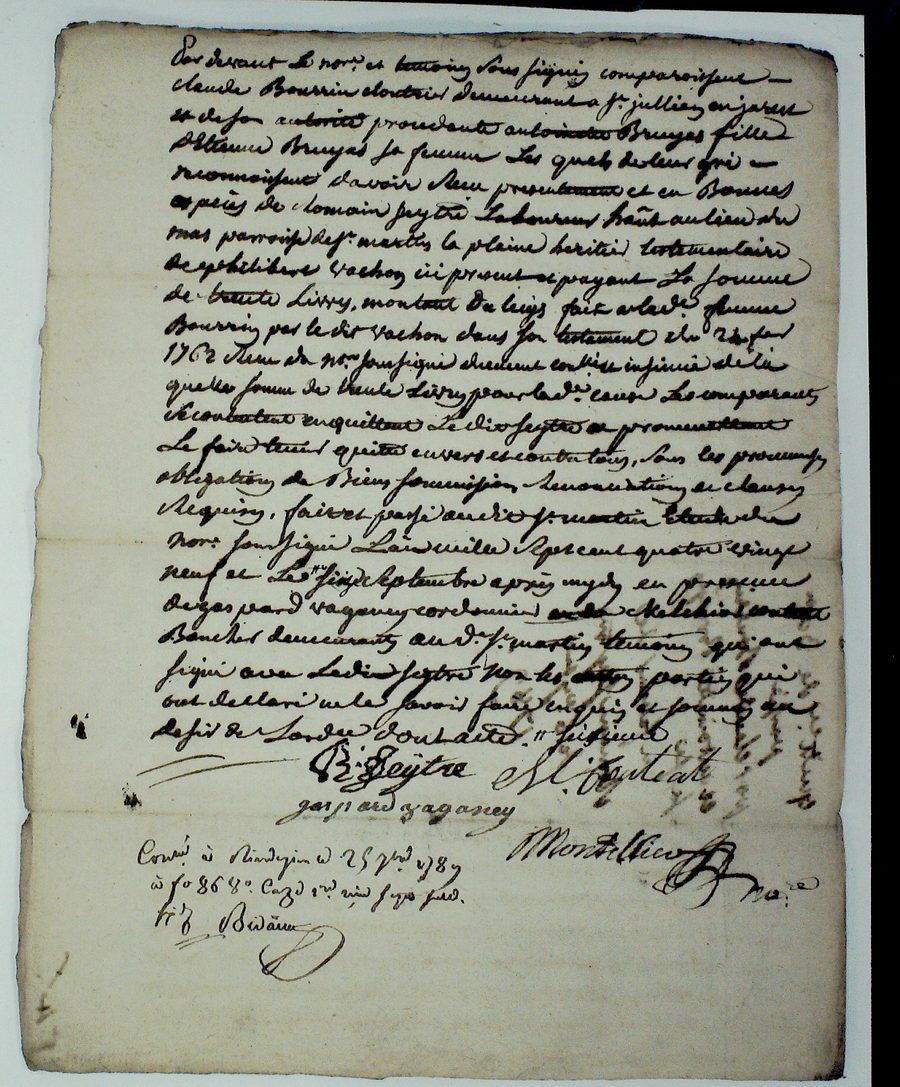 Par devant le nore. et temoins sous signés comparoissent
claude Bourrin cloutrier demeurant a st. jullien en jarest
et de son autorité procedante antoinette Bruyas fille
d'Etienne Bruyas sa femme Les quels de leur gré
reconnoissent davoir Receu presentement et en Bonnes
espèces de Romain seytre Laboureur hâut au lieu du
mas parroisse de st. martin la plaine heritier testementaire
de philibert vachon ici present et payant La somme
de trente Livres, montant du legs fait a lade. femme
Bourrin par le dit vachon dans son testement du
1762 Receu du nore. soussigné duement controllé insinué de la
quelle somme de trente Livres pour lade. cause Les comparants
se contentent en quittent Le dit seytre et promettent
Le faire tenir quitte envers et contre tous, sous les promesses
obligations de Biens soummissions Renonciations et clauses
Requises, fait et passé audit st. martin Etude du
nore. soussigné L'an mille sept cent quatre vingt
neuf et Le septembre après mydy en presence
de gaspard vaganey cordonnier et de Melchior
Boucher demeurants au dt. st. martin temoins qui ont
signé avec Ledit seytre non les parties qui
ont declaré ne le savoir faire enquis et sommés au
desir de Lordce dont acte.
R. Seytre M:
gaspard vaganey
Montellier nore
Conlé. à le 25 7bre 1789
à fo 86 Case 1re.